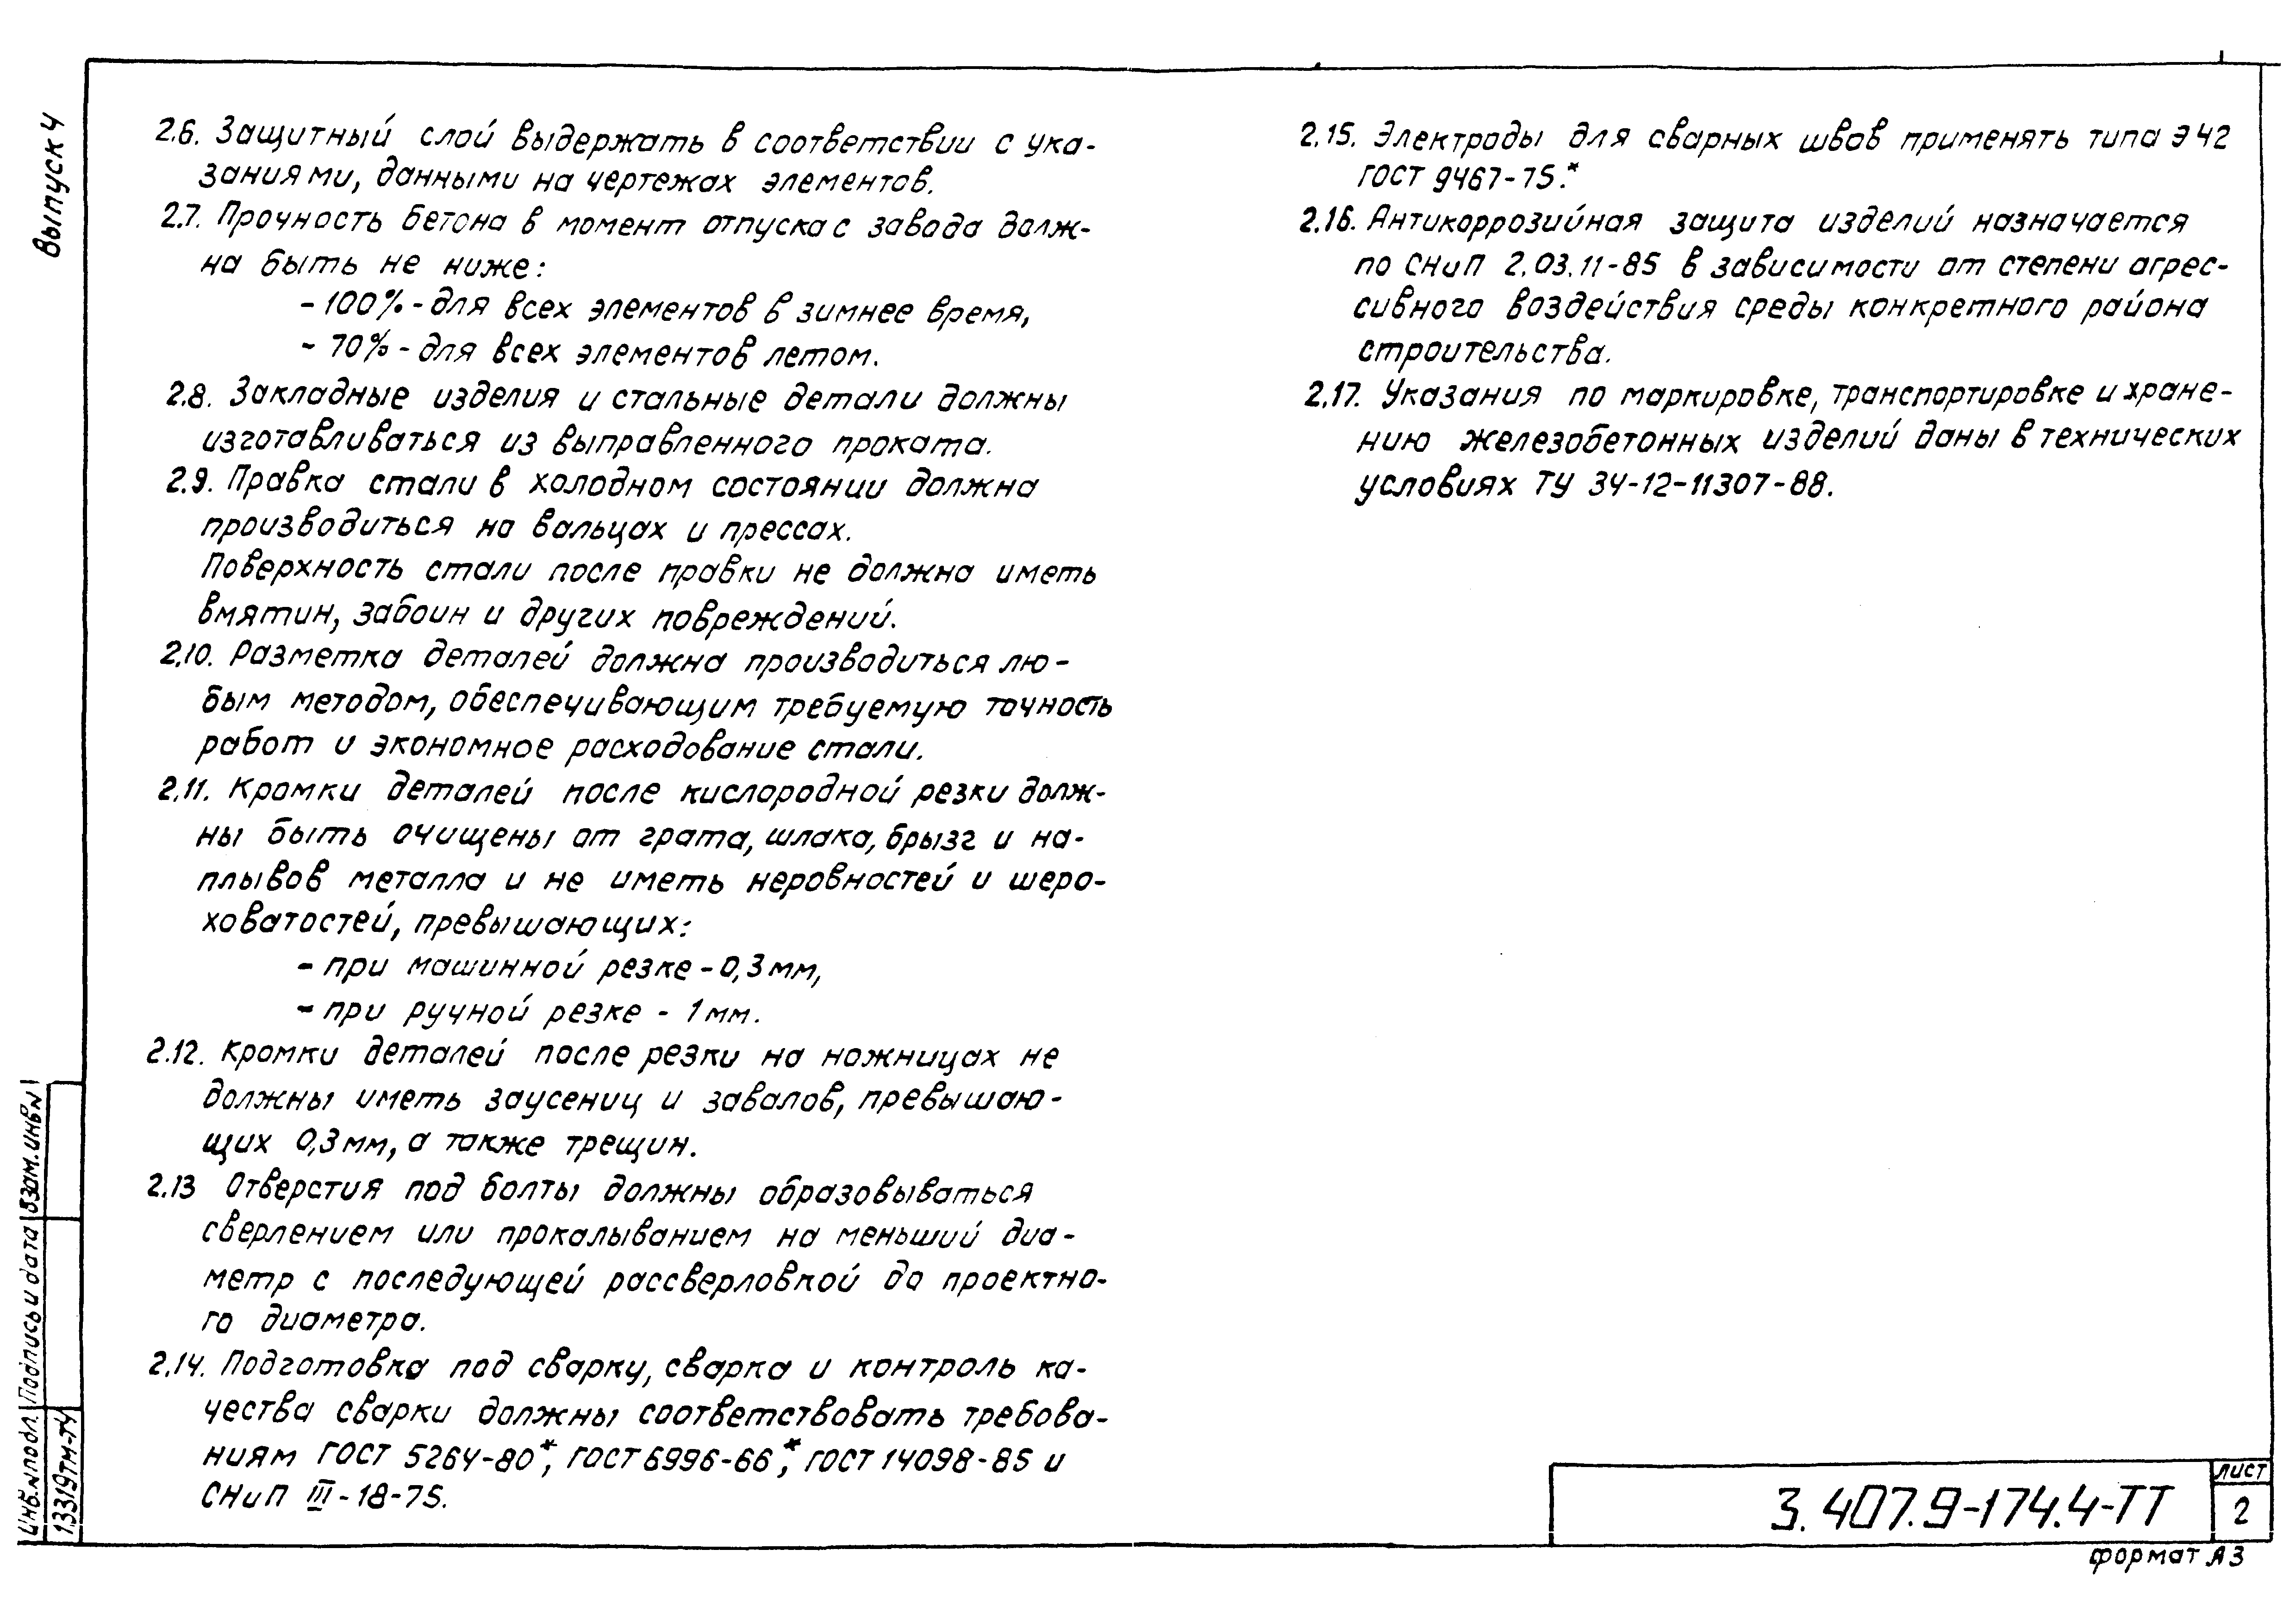 Выпуск 4
2.6. Защитный слой выдержать в соответствии с ука-
заниями, данными на чертежах элементов.
2.7. Прочность бетона в момент отпуска с завода долж-
на быть не ниже:
- 100% - для всех элементов в зимнее время,
- 70% - для всех элементов летом.
2.8. Закладные изделия и стальные детали должны
изготавливаться из выправленного проката.
2.9. Правка стали в холодном состоянии должна
производиться на вальцах и прессах.
Поверхность стали после правки не должна иметь
вмятин, забоин и других повреждений.
2.10. Разметка деталей должна производиться лю-
бым методом, обеспечивающим требуемую точность
работ и экономное расходование стали.
2.11. Кромки деталей после кислородной резки долж-
ны быть очищены от грата, шлака, брызг и на-
плывов металла и не иметь неровностей и шеро-
ховатостей, превышающих:
- при машинной резке - 0,3 мм,
- при ручной резке - 1 мм.
2.12. Кромки деталей после резки на ножницах не
должны иметь заусениц и завалов, превышаю-
щих 0,3 мм, а также трещин.
2.13 Отверстия под болты должны образовываться
сверлением или прокалыванием на меньший диа-
метр с последующей рассверловкой до проектно-
го диаметра.
2.14. Подготовка под сварку, сварка и контроль ка-
чества сварки должны соответствовать требова-
ниям ГОСТ 5264-80*, ГОСТ 6996-66*, ГОСТ 14098-85 и
СНиП III-18-75.
2.15. Электроды для сварных швов применять типа Э42
ГОСТ 9467-75.*
2.16. Антикоррозийная защита изделий назначается
по СНиП 2.03.11-85 в зависимости от степени агрес-
сивного воздействия среды конкретного района
строительства.
2.17. Указания по маркировке, транспортировке и хране-
нию железобетонных изделий даны в технических
условиях ТУ 34-12-11307-88.
Инв.№ подл. Подпись и дата Взам.инв№
13319тм-т4
3.407.9-174.4-ТТ
лист
2
формат А3